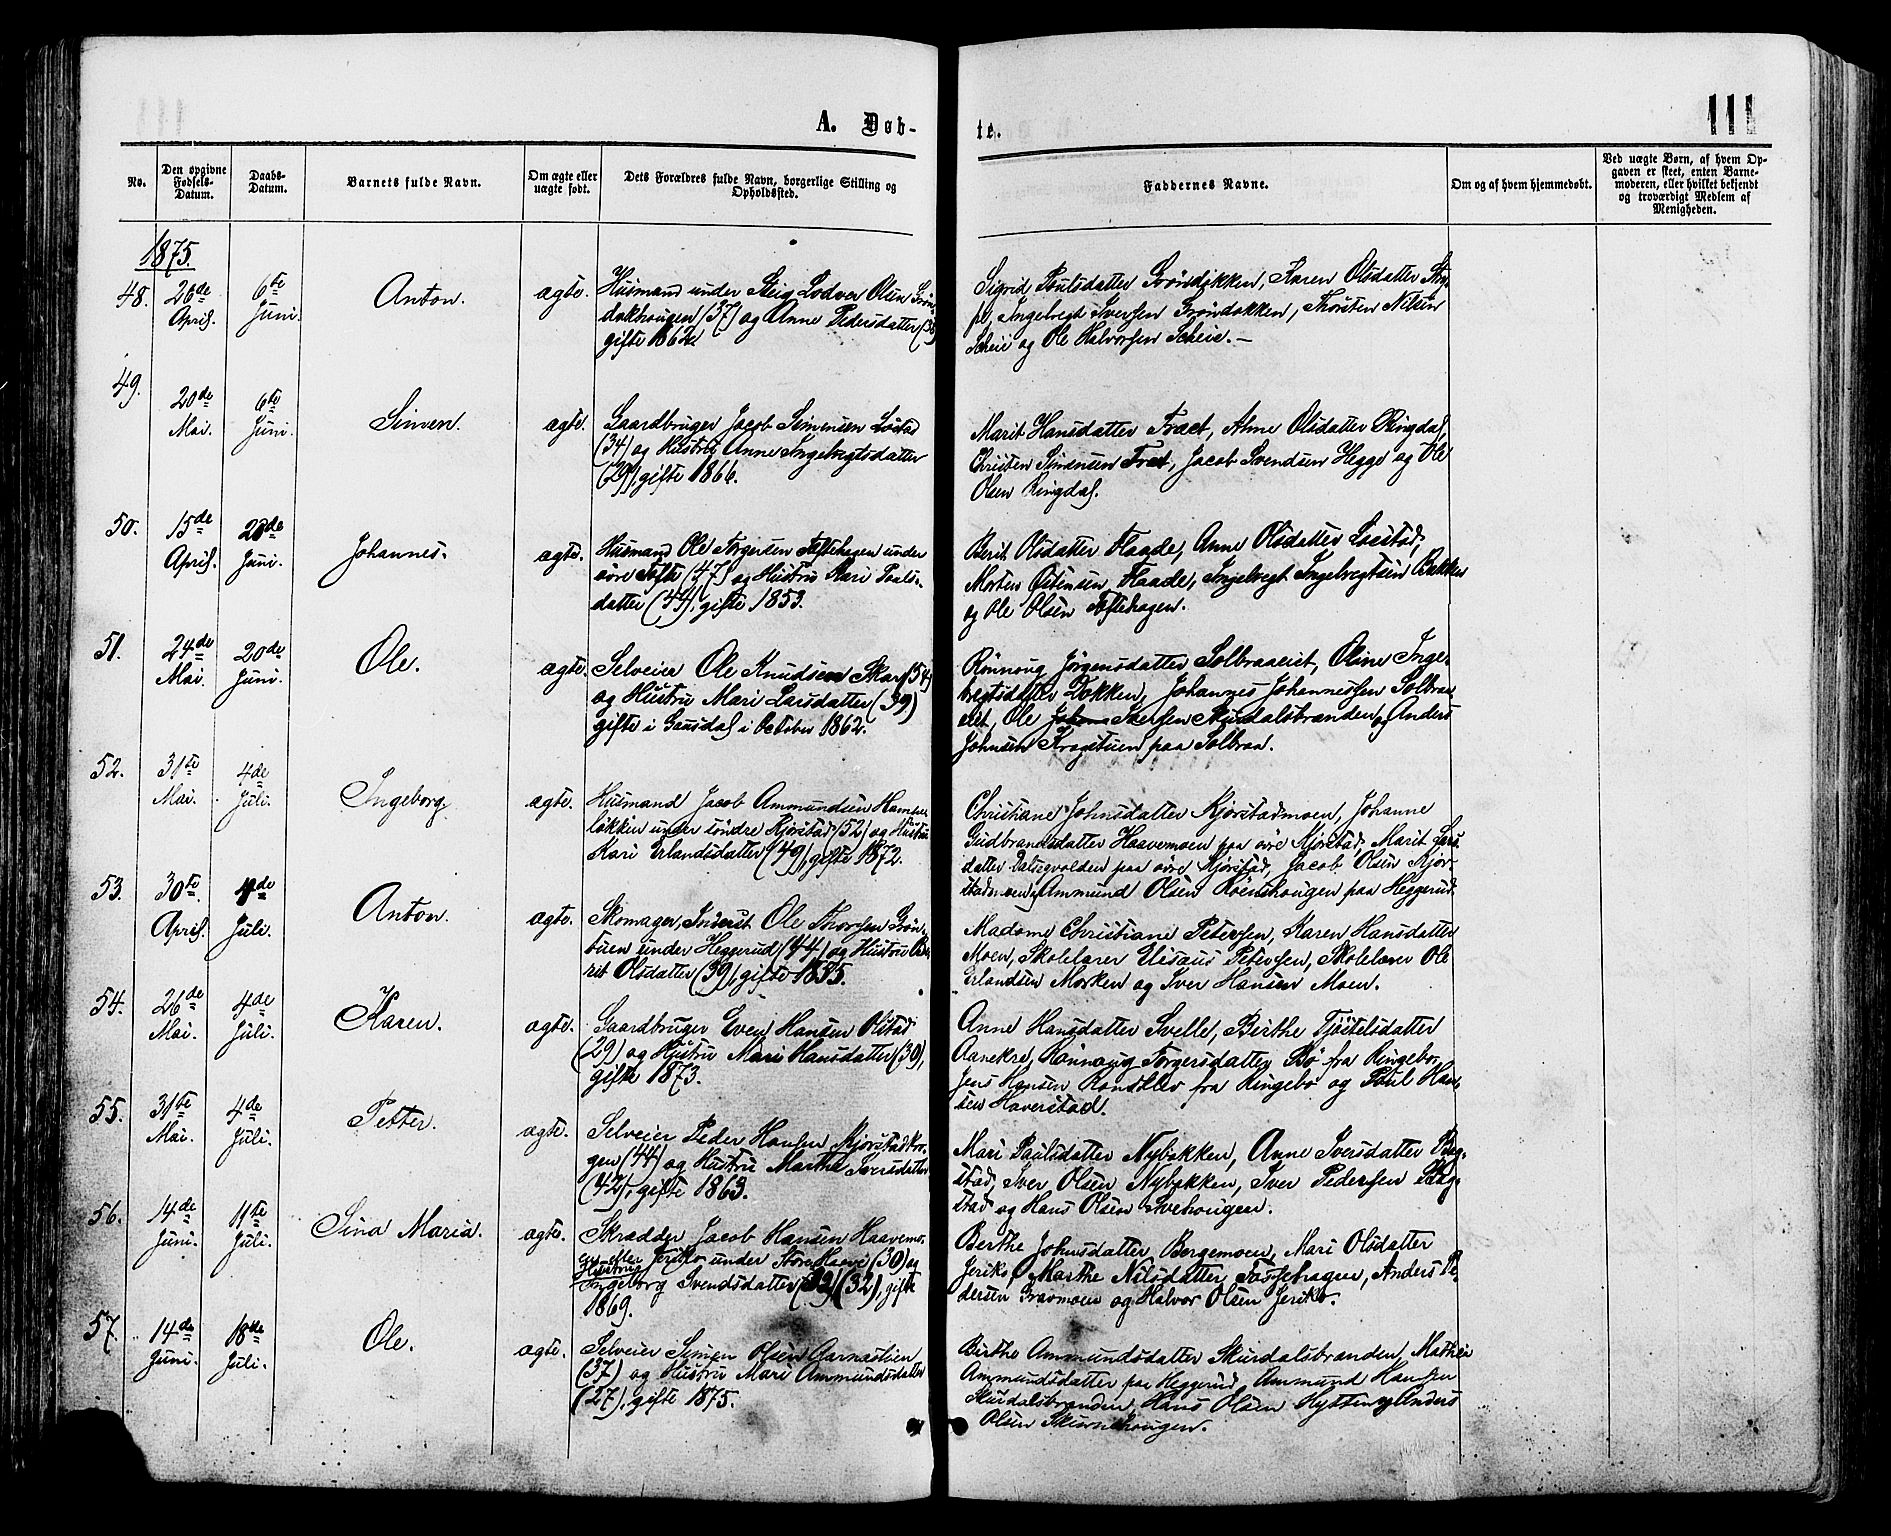 111
A. Døb-
te.
No.
Den opgivne Fødsels-Datum.
Daabs-Datum.
Barnets fulde Navn.
Om ægte eller uægte født.
Dets Forældres fulde Navn, borgerlige Stilling og Opholdssted.
Faddernes Navne.
Om og af hvem hjemmedøbt.
Ved uægte Børn, af hvem Op-
gaven er skeet, enten Barne-
moderen, eller hvilket bekjendt
og troværdigt Medlem af
Menigheden.
1875.
48. 26de April. 6te Juni. Anton. ægte.
Husmand under Steig Lodver Olsen Grøn-
dokhougen (37) og Anne Pedersdatter
gifte 1862
Sigrid Poulsdatter Grøndokken, Karen Olsdatter
Ingebregt Iversen Grøndokken, Thorsten Nilsen
Scheie og Ole Halvorsen Scheie.—
49. 20de Mai. 6te Juni. Simen. ægte.
Gaardbruger Jacob Simensen Løstad
(34) og Hustru Anne Ingebregtsdatter
(29), gifte 1866.
Marit Hansdatter Fræt, Anne Olsdatter Ringdal,
Christen Simensen Fræt, Jacob Svendsen Hegge og Ole
Olsen Ringdal.
50. 15de April. 20de Juni. Johannes. ægte.
Husmand Ole Torgersen Toftehagen under
søre Tofte (47) og Hustru Kari Poals-
datter (44), gifte 1853.
Berit Olsdatter Flaade, Anne Olsdatter Løstad,
Morten Østensen Flaade, Ingebregt Ingebregtsen Bakken
og Ole Olsen Toftehagen.
51. 24de Mai. 20de Juni. Ole. ægte.
Selveier Ole Knudsen Skar (54)
og Hustru Mari Larsdatter (39)
gifte i Gausdal i October 1862.
Rønnoug Jørgensdatter Solbraaeiet, Oline Inge-
bregtsdatter Dokken, Johannes Johannessen Solbraa-
eiet, Ole Iversen Skurdalsbranden og Anders
Johnsen Krogstuen paa Solbraa.
52. 31te Mai. 4de Juli. Ingeborg. ægte.
Husmand Jacob Ammundsen
løkken under søndre Kjørstad (52) og Hustru
Kari Erlandsdatter (49), gifte 1872.
Christiane Johnsdatter Kjørstadmoen, Johanne
Gudbrandsdatter Haavemoen paa øvre Kjørstad, Marit Lars-
datter paa øvre Kjørstad, Jacob Olsen Kjør-
stadmoen, Ammund Olsen Røenshougen paa Heggerud.
53. 30te April. 4de Juli. Anton. ægte.
Skomager, Inderst Ole Thorsen Grøn-
tuen under Heggerud (44) og Hustru Be-
rit Olsdatter (39), gifte 1855.
Madame Christiane Petersen, Karen Hansdatter
Moen, Skolelærer Elisæus Petersen, Skolelærer Ole
Erlandsen Morken og Iver Hansen Moen.
54. 26de Mai. 4de Juli. Karen. ægte.
Gaardbruger Even Hansen Olstad
(29) og Hustru Mari Hansdatter (30),
gifte 1873.
Anne Hansdatter Svelle, Birthe Tjøstelsdatter
Aanekre, Rønnaug Torgersdatter Bø fra Ringebo,
Jens Hansen Randklev fra Ringebo og Poul Han-
sen Haverstad.
55. 31te Mai. 4de Juli. Petter. ægte.
Selveier Peder Hansen Kjørstadkro-
gen (44) og Hustru Marthe Iversdatter
(42), gifte 1863.
Mari Paulsdatter Nybakken, Anne Iversdatter Bag-
stad, Iver Olsen Nybakken, Iver Pedersen Bag-
stad og Hans Olsen Svehougen.
56. 14de Juni. 11te Juli. Sina Maria. ægte.
Skrædder Jacob Hansen Haavemo-
en eller Jeriko under Store Haave (30) og
Hustru
Ingeborg Svendsdatter (32), gifte
1869.
Berthe Johnsdatter Borgemoen, Mari Olsdatter
Jeriko, Marthe Nilsdatter Tossehagen, Anders Pe-
dersen Gravmoen og Halvor Olsen Jeriko.
57. 14de Juni. 18de Juli. Ole. ægte.
Selveier Simen Olsen Aarnæstuen
(37) og Hustru Mari Ammundsdatter
(27), gifte 1875.
Birthe Ammundsdatter Skurdalsbranden, Mathea
Ammundsdatter paa Heggerud, Ammund Hansen
Skurdalsbranden, Hans Olsen Hytten og Anders
Olsen